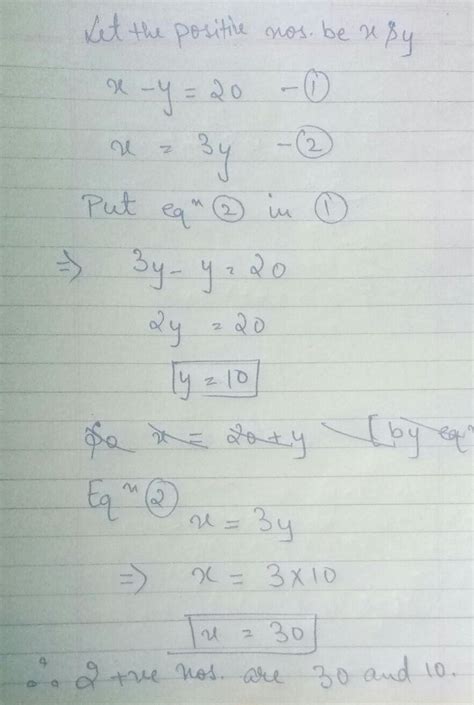 Let the positive nos. be x & y
x - y = 20 - ①
x = 3y - ②
Put eqⁿ ② in ①
⇒ 3y - y = 20
2y = 20
y = 10
So x = 20 + y [by eqⁿ
Eqⁿ ②
x = 3y
⇒ x = 3 × 10
x = 30
∴ 2 +ve nos. are 30 and 10.